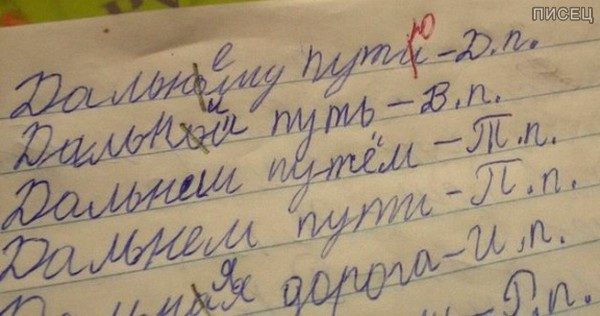 ПИСЕЦ
Дальнему путю – Д.п.
Дальний путь – В.п.
Дальнем путём – Т.п.
Дальнем пути – П.п.
Дальняя дорога – И.п.
Р.п.